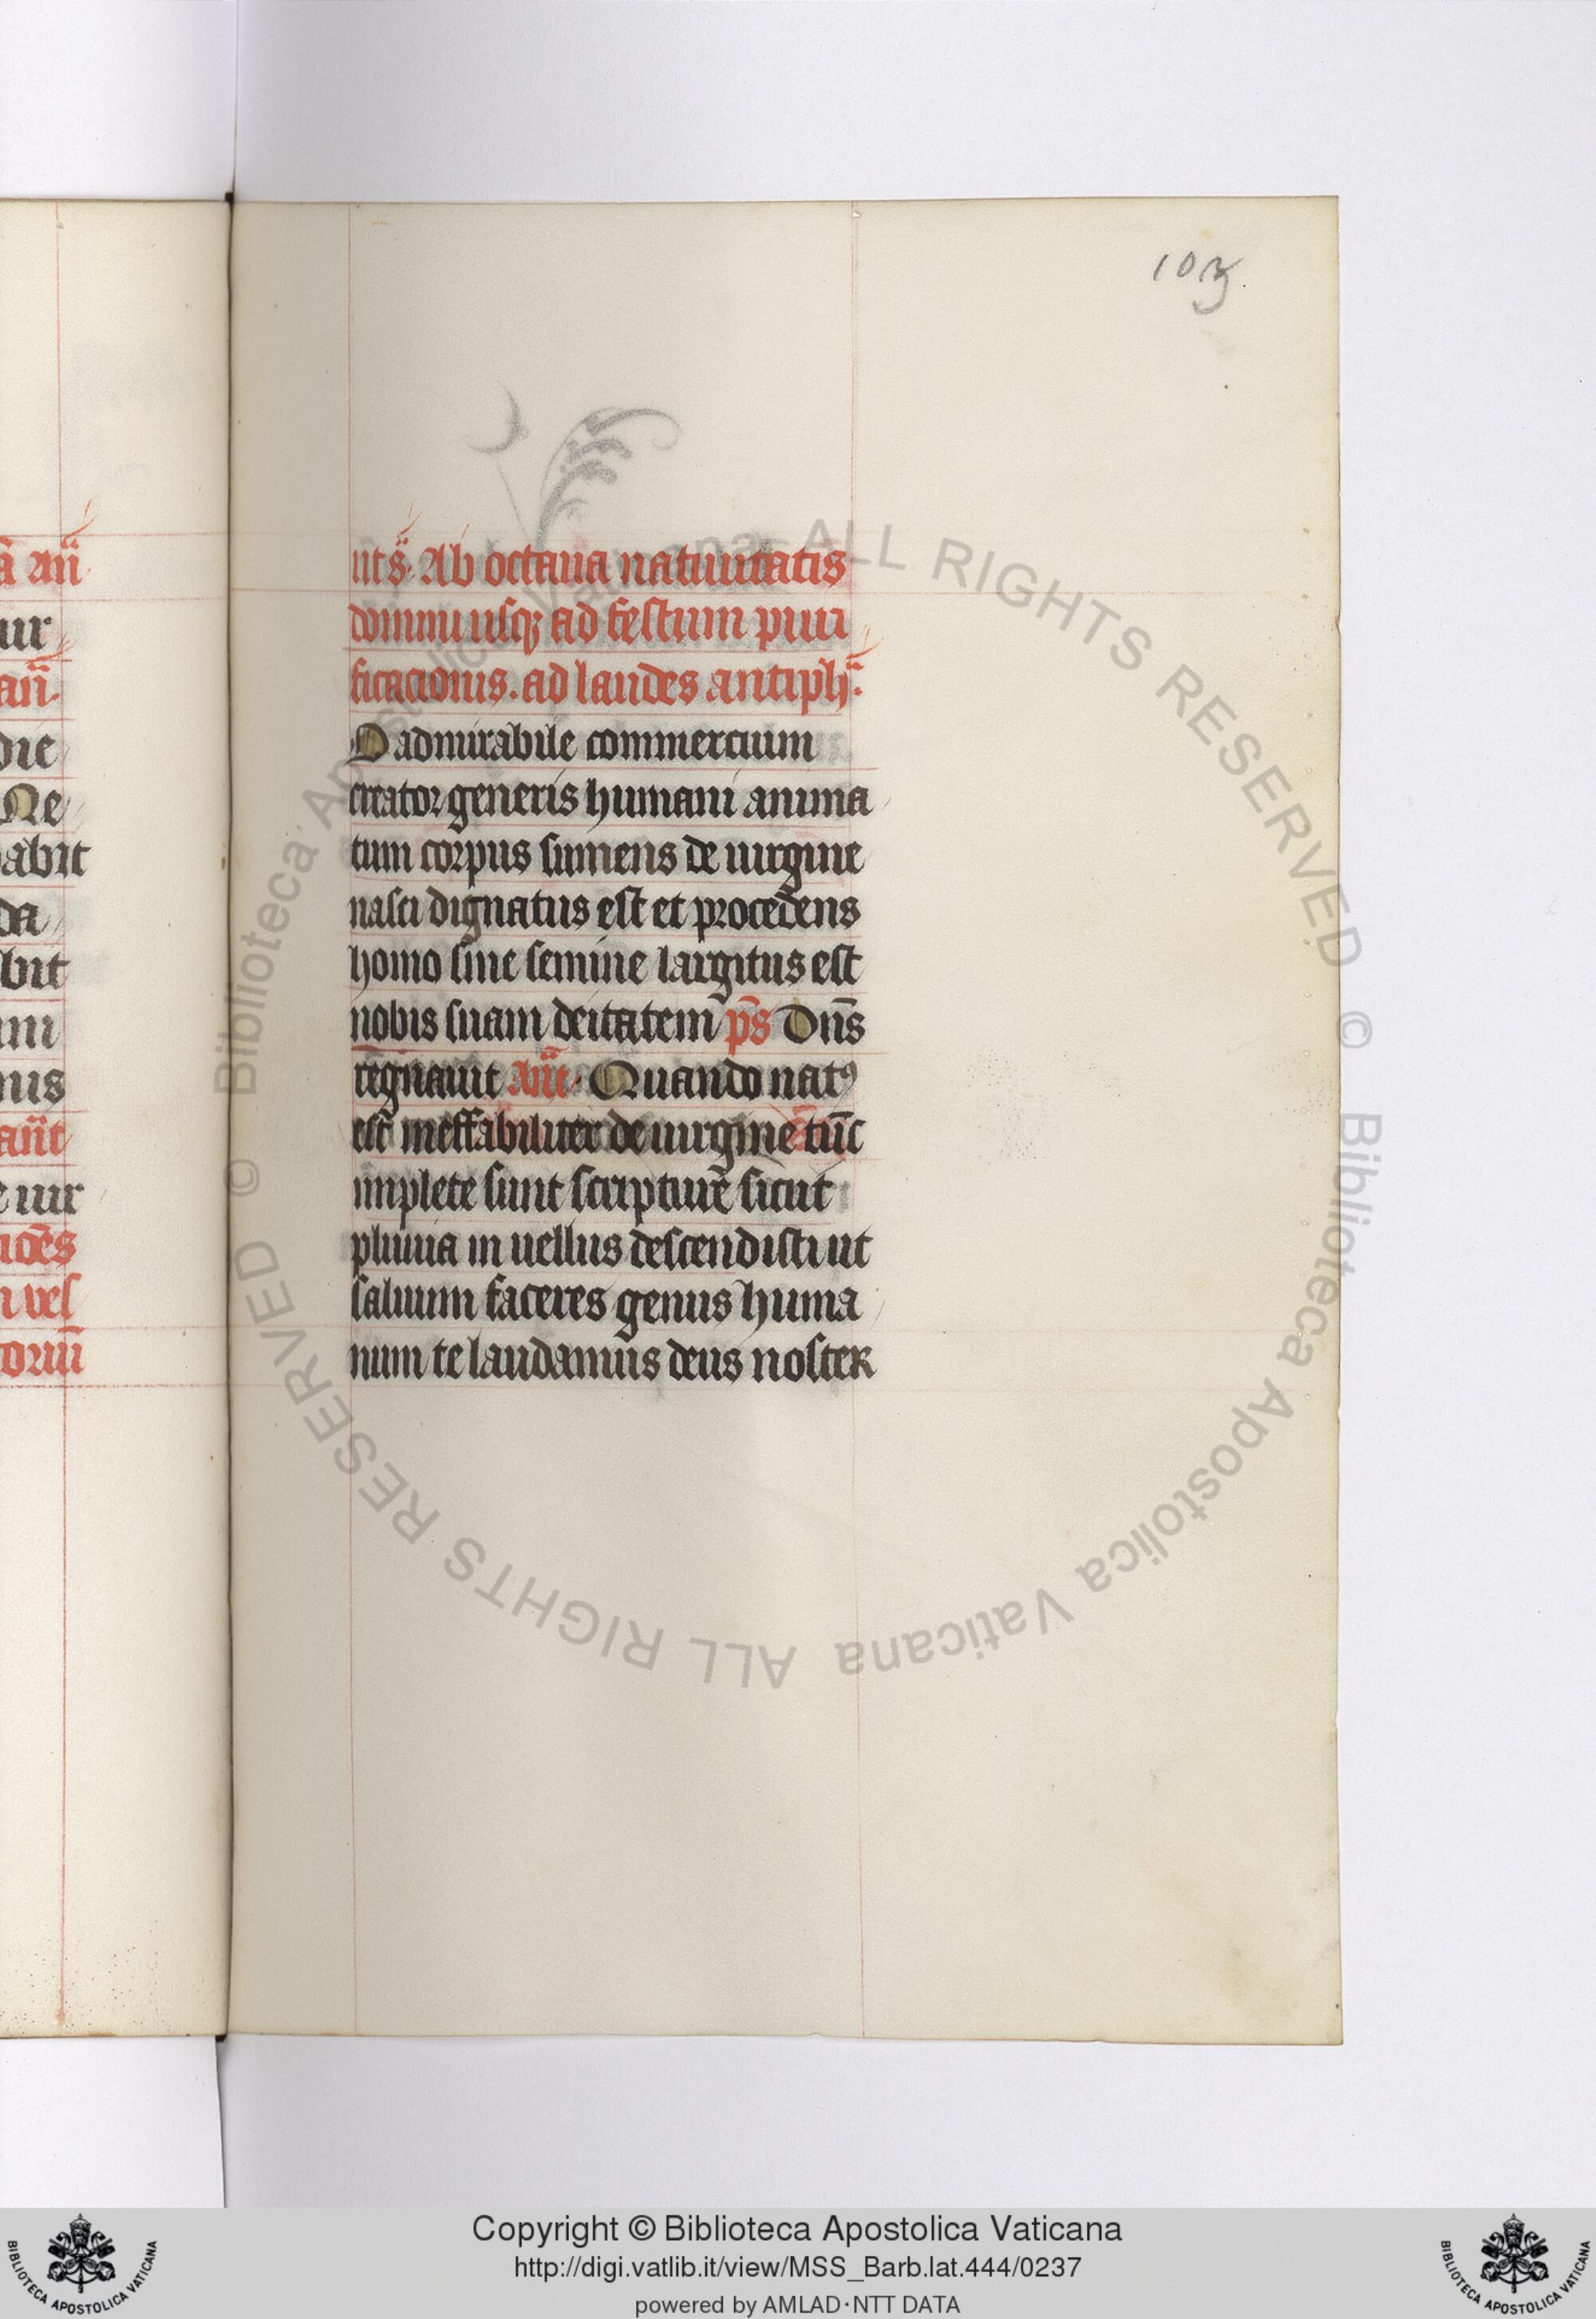 103
ā añ
ur
añ.
die
Ne
abit
da
bit
nus
añt
e uir
ides
n vel
torum̄
uts̄. Ab octaua natiuitatis
domini usq; ad festum puri
ficacionis. ad laudes antiph̄.
O admirabile commercium
creator generis humani anima
tum corpus sumens de uirgine
nasci dignatus est et procedens
homo sine semine largitus est
nobis suam deitatem p̄s Dn̄s
regnauit An̄t. Quando natꝰ
est ineffabiliter de uirgine tūc
implete sunt scripture sicut
pluuia in uellus descendisti ut
saluum faceres genus huma
num te laudamus deus noster
© Biblioteca Apostolica Vaticana ALL RIGHTS RESERVED © Biblioteca Apostolica Vaticana ALL RIGHTS RESERVED
Copyright © Biblioteca Apostolica Vaticana
http://digi.vatlib.it/view/MSS_Barb.lat.444/0237
powered by AMLAD·NTT DATA
BIBLIOTECA APOSTOLICA VATICANA
BIBLIOTECA APOSTOLICA VATICANA